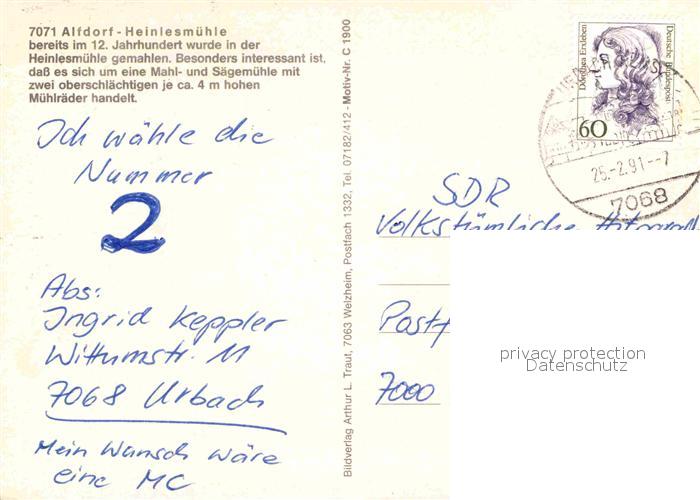 7071 Alfdorf - Heinlesmühle
bereits im 12. Jahrhundert wurde in der
Heinlesmühle gemahlen. Besonders interessant ist,
daß es sich um eine Mahl- und Sägemühle mit
zwei oberschlächtigen je ca. 4 m hohen
Mühlräder handelt.
Ich wähle die
Nummer
2
Abs:
Ingrid Keppler
Wittumstr. 11
7068 Urbach
Mein Wunsch wäre
eine MC
Bildverlag Arthur L. Traut, 7063 Welzheim, Postfach 1332, Tel. 07182/412 - Motiv-Nr. C 1900
Dorothea Erxleben
Deutsche Bundespost
60
26.-2.91.--7
7068
SDR
Volkstümliche
Postf
7000
privacy protection
Datenschutz